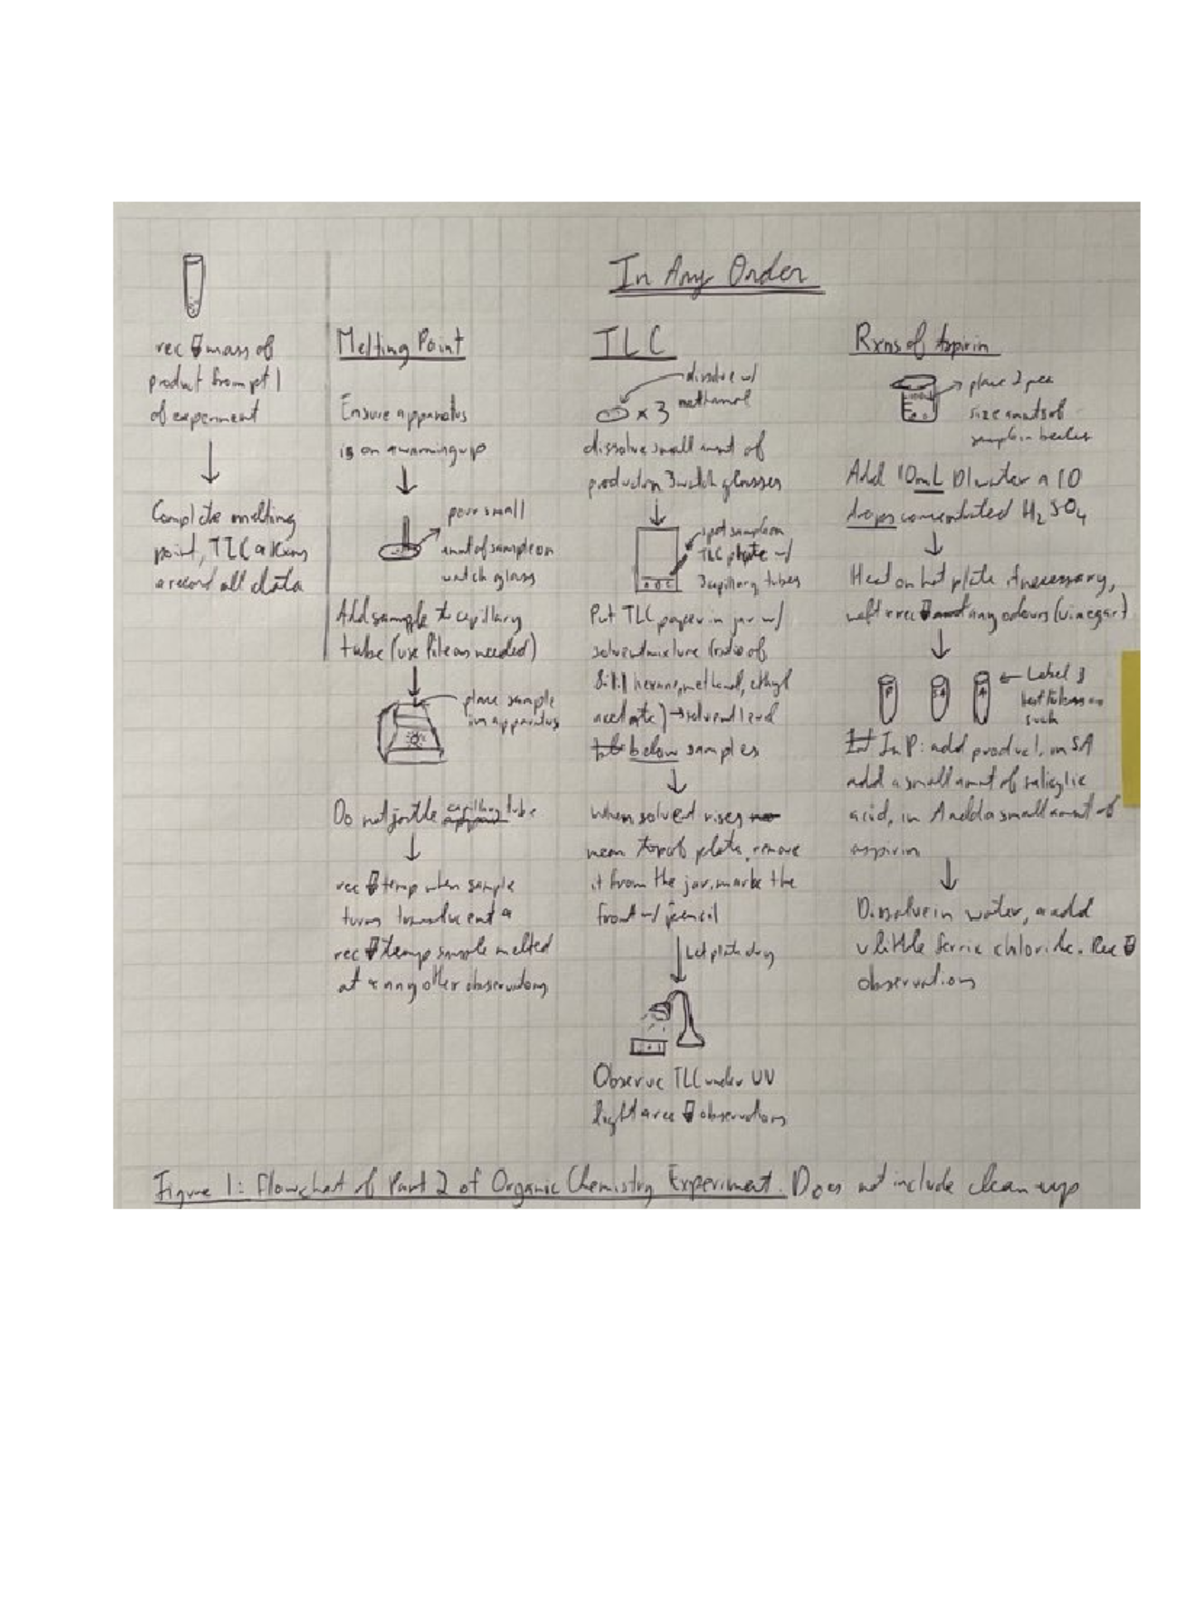 In Any Order
rec mass of
product from pt 1
of experiment
Complete melting
point, TLC & Rxns
& record all data
Melting Point
Ensure apparatus
is on & warming up
pour small
amt of sample on
watch glass
Add sample to capillary
tube (use file as needed)
place sample
in apparatus
Do not jostle capillary tube
rec temp when sample
turns translucent &
rec temp sample melted
at & any other observations
TLC
dissolve w/
methanol
x 3
dissolve small amt of
product on 3 watch glasses
spot sample on
TLC plate w/
3 capillary tubes
Put TLC paper in jar w/
solvent mixture (ratio of
8:1:1 hexane, methanol, ethyl
acetate) → solvent level
below samples
When solvent rises
near top of plate, remove
it from the jar, mark the
front w/ pencil
Let plate dry
Observe TLC under UV
light & rec observations
Rxns of Aspirin
place 2 pea
size amts of
sample in beaker
Add 10mL DI water & 10
drops concentrated H₂SO₄
Heat on hot plate if necessary,
waft & rec any odours (vinegar)
P SA A
← Label 3
test tubes as
such
In P: add product, in SA
add a small amt of salicylic
acid, in A add a small amt of
aspirin
Dissolve in water, & add
a little ferric chloride. Rec
observations
Figure 1: Flowchart of Part 2 of Organic Chemistry Experiment. Does not include clean-up